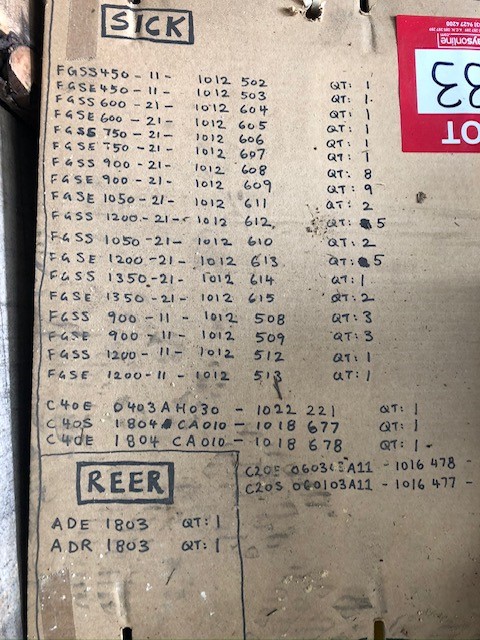 SICK
FGSS450-11- 1012 502 QT: 1
FGSE450-11- 1012 503 QT: 1
FGSS 600-21- 1012 604 QT: 1
FGSE 600-21- 1012 605 QT: 1
FGSS 750-21- 1012 606 QT: 1
FGSE 750-21- 1012 607 QT: 1
FGSS 900-21- 1012 608 QT: 8
FGSE 900-21- 1012 609 QT: 9
FGSE 1050-21- 1012 611 QT: 2
FGSS 1200-21- 1012 612 QT: 5
FGSS 1050-21- 1012 610 QT: 2
FGSE 1200-21- 1012 613 QT: 5
FGSS 1350-21- 1012 614 QT: 1
FGSE 1350-21- 1012 615 QT: 2
FGSS 900-11- 1012 508 QT: 3
FGSE 900-11- 1012 509 QT: 3
FGSS 1200-11- 1012 512 QT: 1
FGSE 1200-11- 1012 513 QT: 1
C40E 0403AH030 - 1022 221 QT: 1
C40S 1804 CA010 - 1018 677 QT: 1
C40E 1804 CA010 - 1018 678 QT: 1
C20S 060103A11 - 1016 477 -
REER
ADE 1803 QT: 1
ADR 1803 QT: 1
aysonline
.com
33
OT